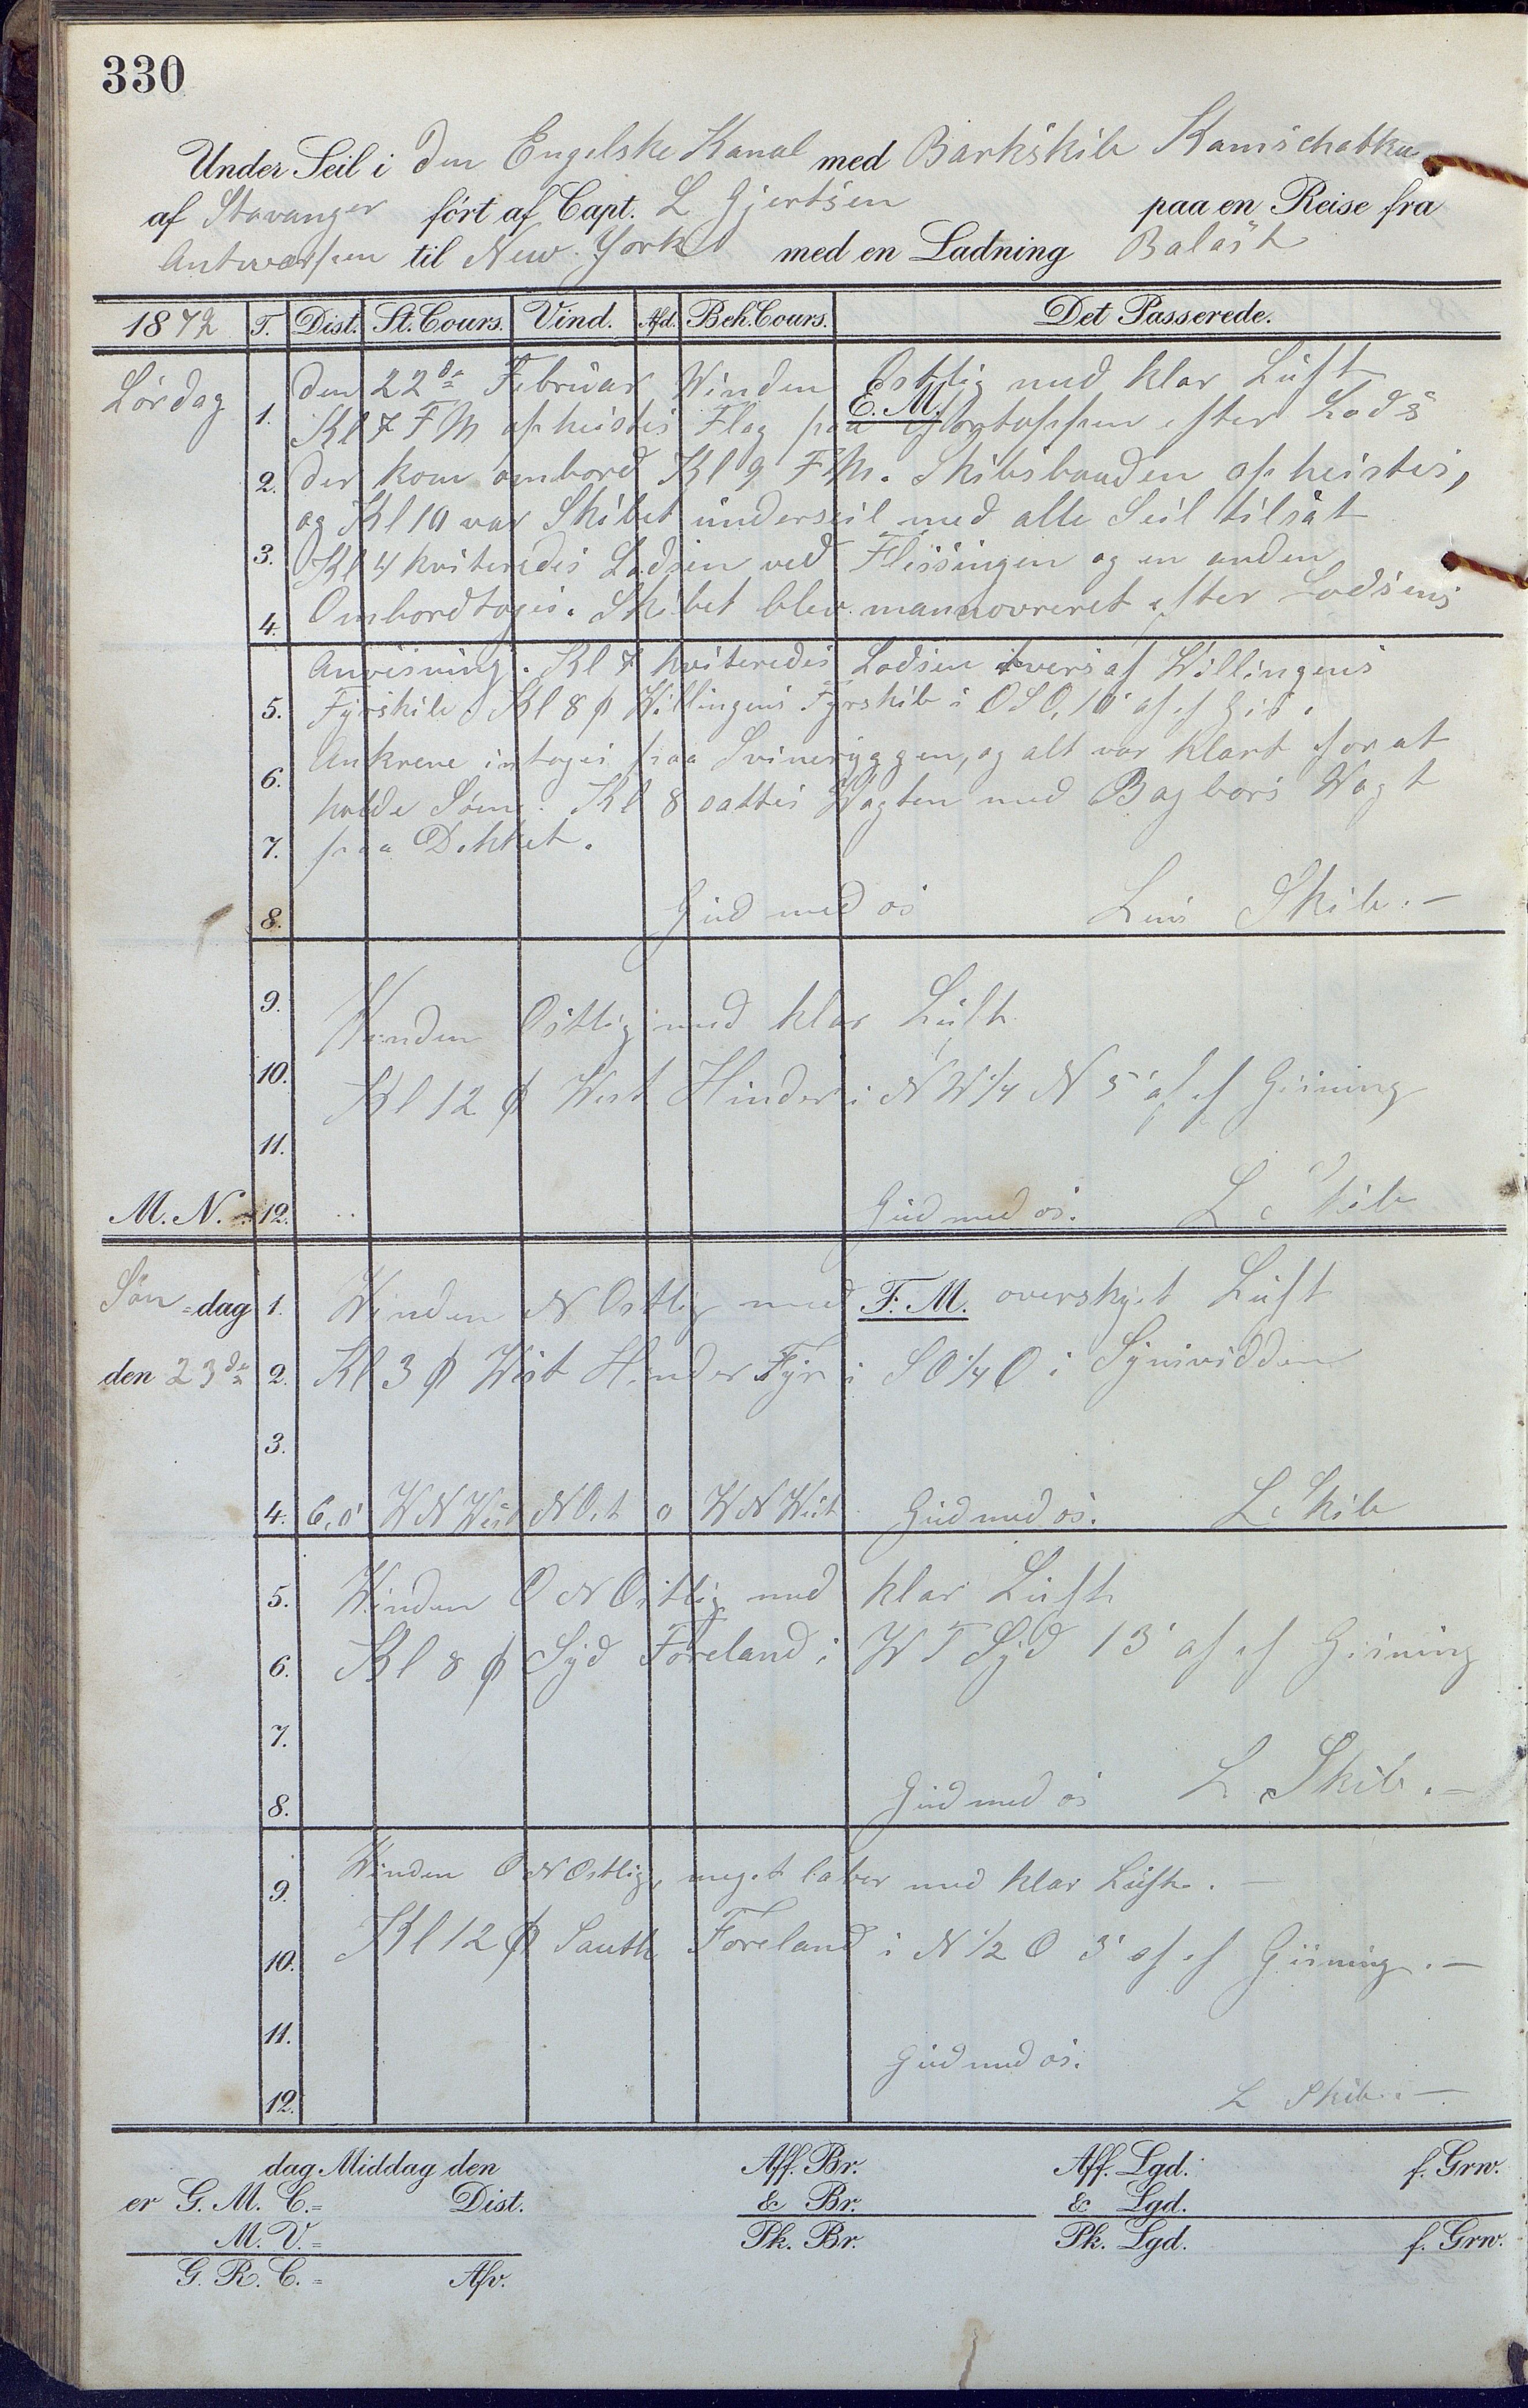 330
Under Seil i den Engelske Kanal med Barkskib Kamschatka
af Stavanger ført af Capt. L Gjertsen paa en Reise fra
Antwerpen til New York med en Ladning Balast
1879 T. Dist. St. Cours. Vind. Afd. Beh. Cours. Det Passerede.
Lørdag den 22de Februar Winden Ostlig med klar Luft
E. M.
1. Kl 7 FM opheistes Flag paa Fortoppen efter Lods
2. der kom ombord Kl 9 FM. Skibsbaaden opheistes,
og Kl 10 var Skibet underseil med alle Seil tilsat
3. Kl 4 kviteredes Lodsen ved Flissingen og en anden
4. Ombordtoges. Skibet blev mannovreret efter Lodsens
Anvisning. Kl 7 kviteredes Lodsen tvers af Willingens
5. Fyrskib. Kl 8 ϕ Willingens Fyrskib i OSO, 10' af ef Gis.
Ankrene intoges paa Svineryggen, og alt var klart for at
6. holde Søen. Kl 8 sattes Wagten med Bagbors Wagt
7. paa Dækket.
8. Gud med os Lens Skib. —
9. Winden Ostlig med klar Luft
10. Kl 12 ϕ West Hinder i NW 1/4 N 5' af ef Gisning
11.
M. N. 12. Gud med os. L Skib
Søn=dag 1. Winden N Ostlig med F. M. overskyet Luft
den 23de 2. Kl 3 ϕ West Hinder Fyr i SO 1/4 O i Synsvidden
3.
4. 6,0' WNWest NOst 0 WNWest Gud med os. L Skib
5. Winden ONOstlig med klar Luft
6. Kl 8 ϕ Syd Foreland i W T Syd 13' af ef Gisning
7.
8. Gud med os L Skib. —
9. Winden ONOstlig, meget laber med klar Luft. —
10. Kl 12 ϕ South Foreland i N 1/2 O 3' af ef Gisning. —
11. Gud med os.
12. L Skib. —
dag Middag den Aff. Br. Aff. Lgd. f. Grw.
er G. M. C.= Dist. & Br. & Lgd.
M. V.= Pk. Br. Pk. Lgd. f. Grw.
G. R. C.= Afv.